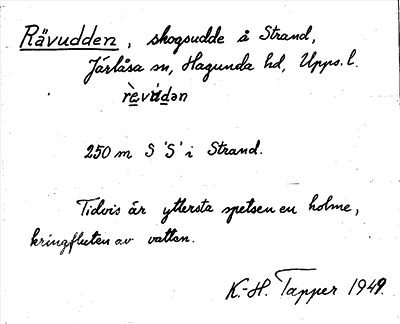 Rävudden, skogsudde å Strand,
Járlåsa sn, Hagunda hd, Upps. l.
250 m S 'S' i Strand.
Tidvis är yttersta spetsen en holme,
kringfluten av vatten.
K.-H. Tapper 1949.